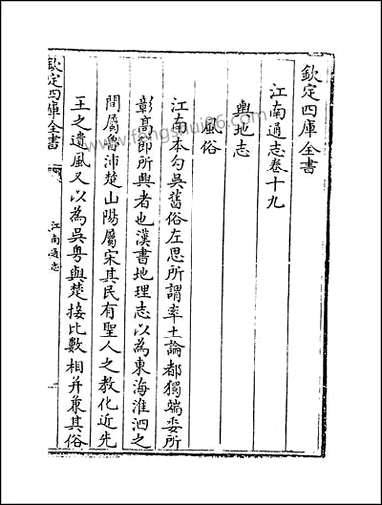 欽定四庫全書
江南通志卷十九
輿地志
風俗
江南本勾吳舊俗左思所謂率土論都獨端委所
彰高節所興者也漢書地理志以為東海淮泗之
間屬魯沛楚山陽屬宋其民有聖人之教化近先
王之遺風又以為吳粵與楚接比數相并兼其俗
欽定四庫全書
江南通志